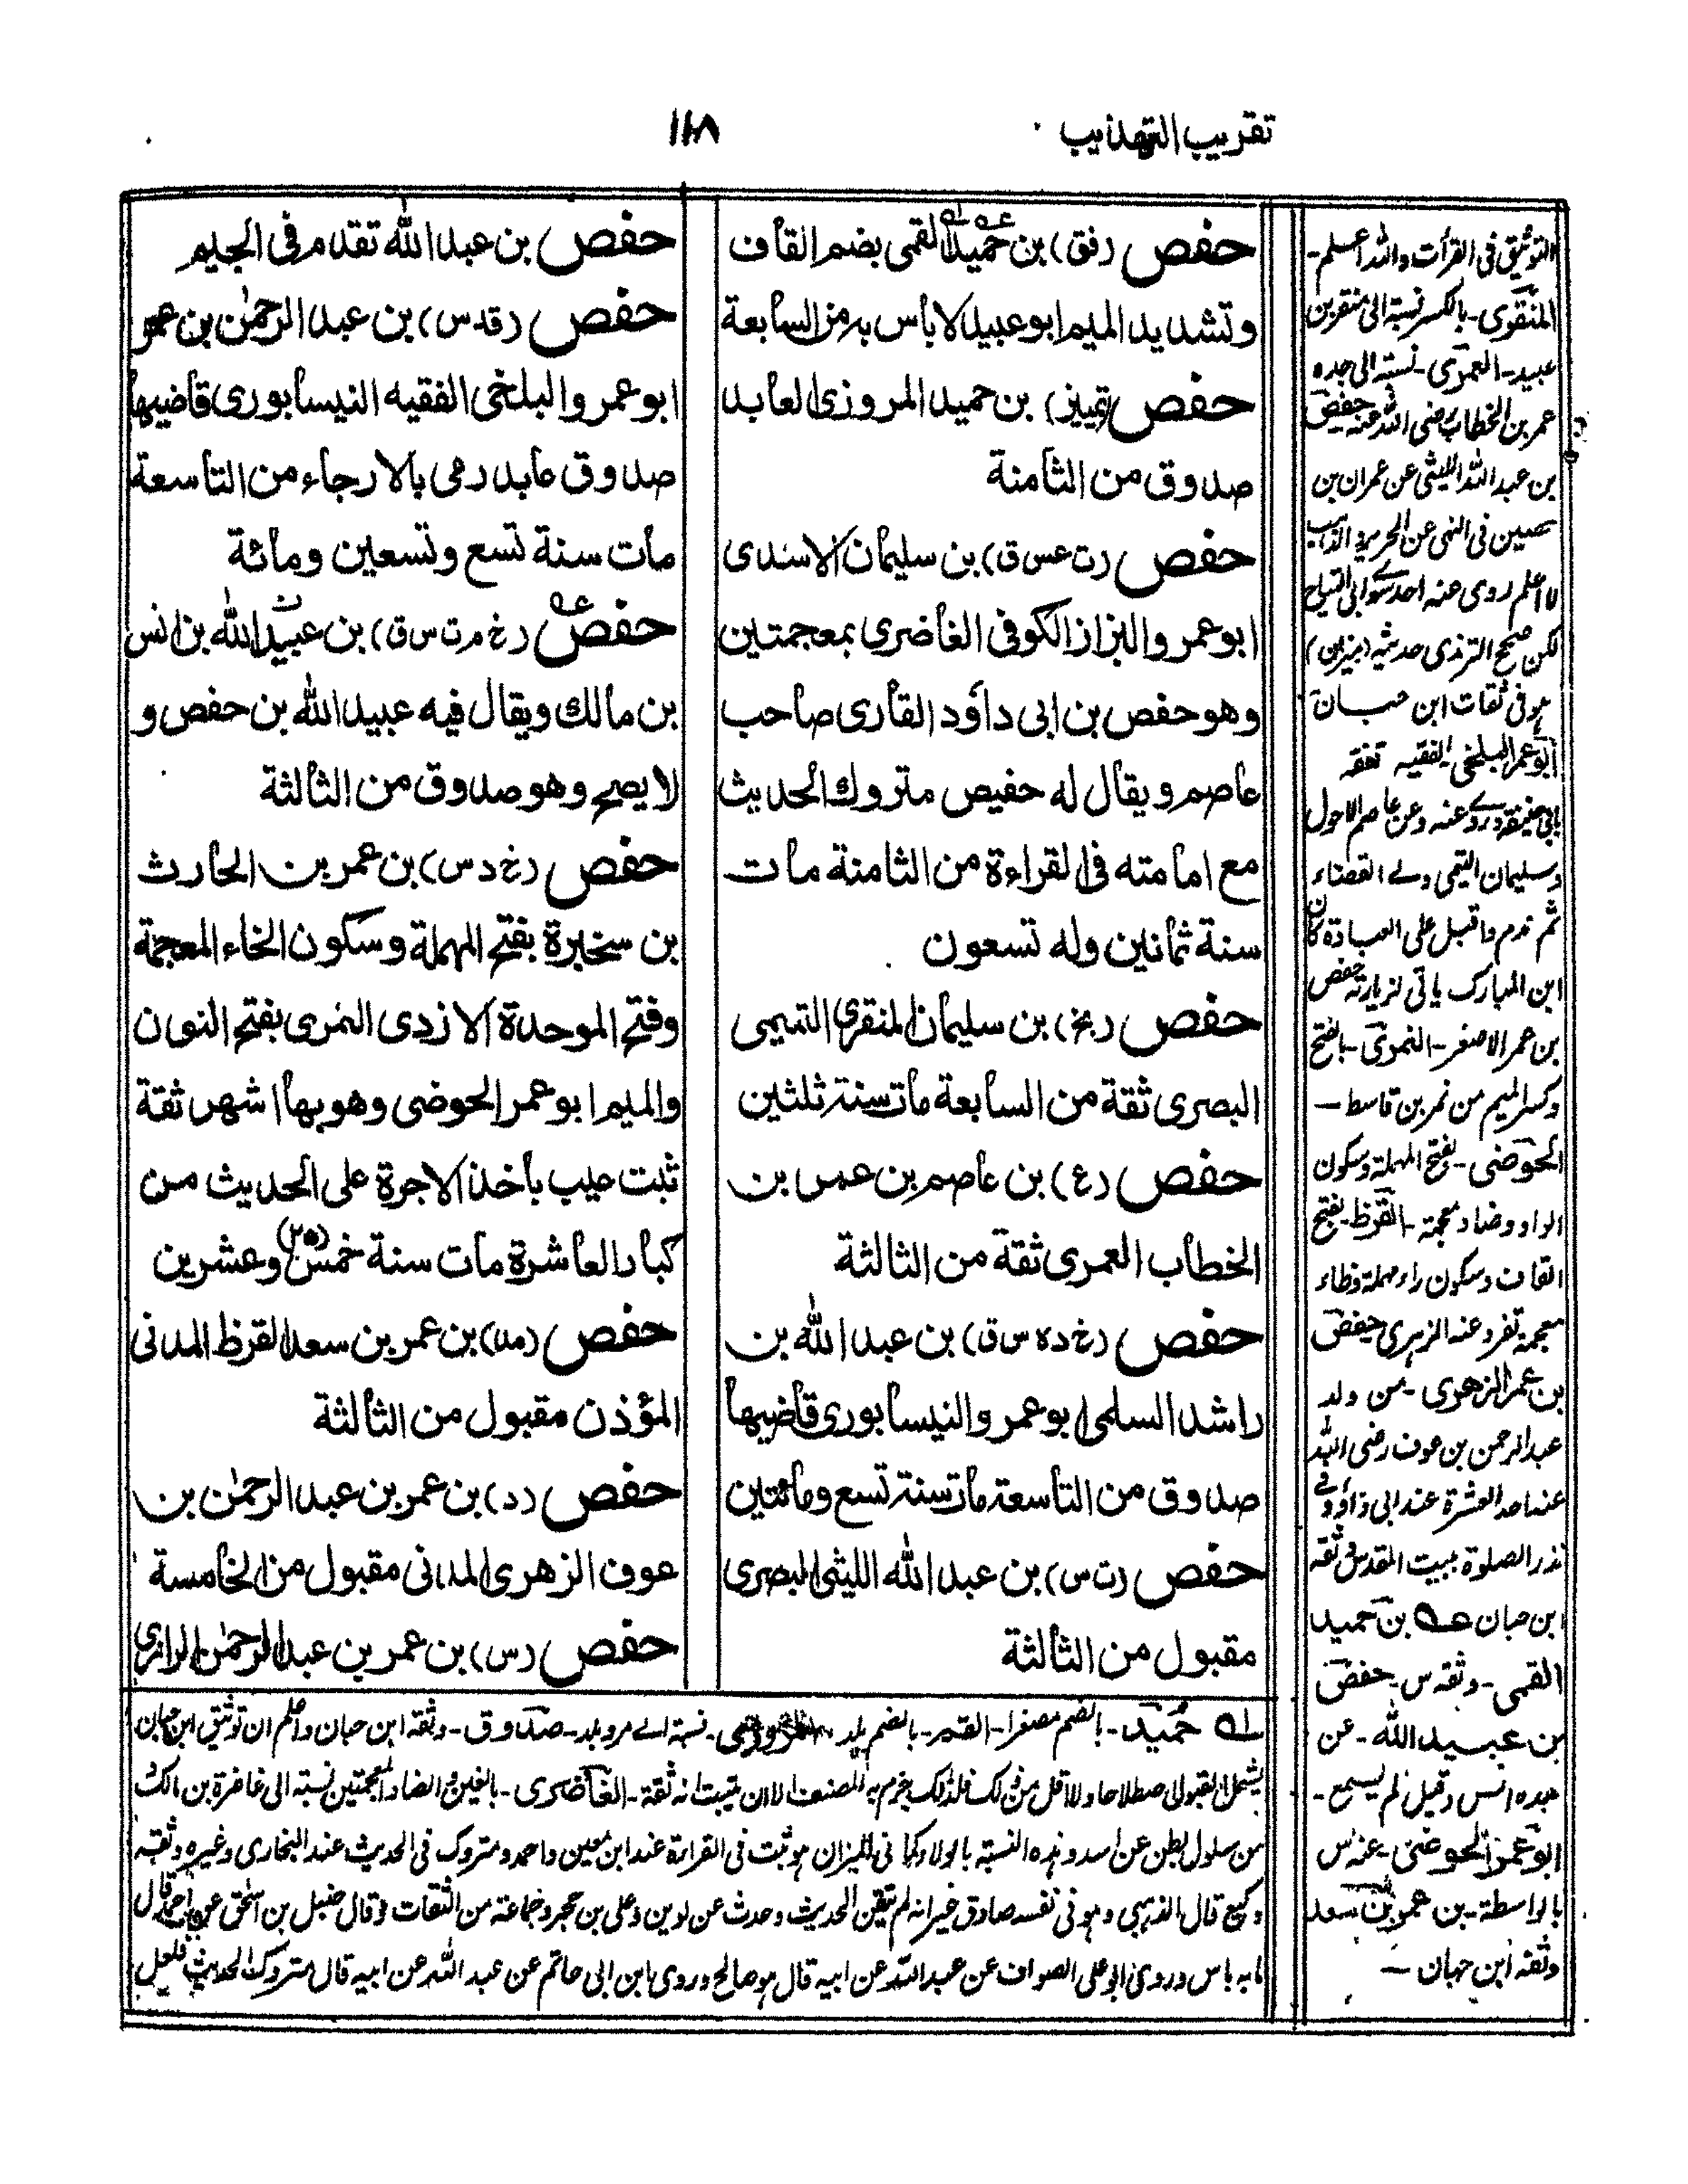 تقريب التهذيب
١١٨
حفص (فق) بن حميد القمى بضم القاف
وتشديد الميم ابو عبيد لا باس به من السابعة
حفص (تمييز) بن حميد المروزى العابد
صدوق من الثامنة
حفص (ت عس ق) بن سليمان الاسدى
ابو عمر والبزاز الكوفى الغاضرى بمعجمتين
وهو حفص بن ابى داؤد القارى صاحب
عاصم ويقال له حفيص متروك الحديث
مع امامته فى القراءة من الثامنة مات
سنة ثمانين وله تسعون
حفص (بخ) بن سليمان المنقرى التميمى
البصرى ثقة من السابعة مات سنة ثلثين
حفص (ع) بن عاصم بن عمر بن
الخطاب العمرى ثقة من الثالثة
حفص (خ ده س ق) بن عبد الله بن
راشد السلمى ابو عمر والنيسابورى قاضيها
صدوق من التاسعة مات سنة تسع ومائتين
حفص (ت س) بن عبد الله الليثى البصرى
مقبول من الثالثة
حفص بن عبد الله تقدم فى الجيم
حفص (قد س) بن عبد الرحمٰن بن عمر
ابو عمر والبلخى الفقيه النيسابورى قاضيها
صدوق عابد رمى بالارجاء من التاسعة
مات سنة تسع وتسعين ومائة
حفص (خ م ت س ق) بن عبيد الله بن انس
بن مالك ويقال فيه عبيد الله بن حفص و
لا يصح وهو صدوق من الثالثة
حفص (خ د س) بن عمر بن الحارث
بن سخبرة بفتح المهملة وسكون الخاء المعجمة
وفتح الموحدة الازدى النمرى بفتح النون
والميم ابو عمر الحوضى وهو بها اشهر ثقة
ثبت عيب بأخذ الاجرة على الحديث من
كبار العاشرة مات سنة خمس (٢٥) وعشرين
حفص (مد) بن عمر بن سعد القرظ المدنى
المؤذن مقبول من الثالثة
حفص (د) بن عمر بن عبد الرحمٰن بن
عوف الزهرى المدنى مقبول من الخامسة
حفص (س) بن عمر بن عبد الرحمٰن الرازى
التوثيق فى القرأت والله اعلم-
المنقرى- بالكسر نسبة الى منقر بن
عبيد- العمرى- نسبة الى جده
عمر بن الخطاب رضى الله عنه- حفص
بن عبد الله الليثى عن عمران بن
حصين فى النهى عن الحرير والذهب
لا اعلم روى عنه احد سوى ابى التياح
لكن صحح الترمذى حديثه (ميزان)
هو فى ثقات ابن حبان
ابو عمر البلخى الفقيه تفقه
بابى حنيفة وروى عنه وعن عاصم الاحول
وسليمان التيمى ولى القضاء
ثم ندم واقبل على العبادة كان
ابن المبارك ياتى لزيارته حفص
بن عمر الاصغر- النمرى- بالفتح
وكسر الميم من نمر بن قاسط-
الحوضى- بفتح المهملة وسكون
الواو وضاد معجمة- القرظ- بفتح
القاف وسكون راء مهملة وظاء
معجمة تفرد عنه الزهرى حفص
بن عمر الزهرى- من ولد
عبد الرحمن بن عوف رضى الله
عنه احد العشرة عند ابى داؤد فى
نذر الصلوة ببيت المقدس وثقه
ابن حبان عه بن حميد
القمى- وثقه س- حفص
بن عبيد الله- عن
جده انس وقيل لم يسمع-
ابو عمر الحوضى- عنه س
بالواسطة- بن عمر بن سعد
وثقه ابن حبان-
له حميد- بالضم مصغرا- القمى- بالضم بلد- المروزى- نسبة الى مرو بلد- صدوق- وثقه ابن حبان واعلم ان توثيق ابن حبان
يشمل المقبول اصطلاحا ولا اقل من ذلك فلذلك يجزم به المصنف الا ان يثبت انه ثقة- الغاضرى- بالغين والضاد المعجمتين نسبة الى غاضرة بن مالك
من سلول بطن عن اسد وهذه النسبة بالولاء كما فى الميزان هو ثبت فى القراءة عند ابن معين واحمد ومتروك فى الحديث عند البخارى وغيره وثقه
وكيع قال الذهبى وهو فى نفسه صادق غير انه لم يتقن الحديث وحدث عن لوين وعلى بن حجر وجماعة من الثقات وقال حنبل بن اسحق عن احمد قال
ما به باس وروى ابو على الصواف عن عبد الله عن ابيه قال هو صالح وروى ابن ابى حاتم عن عبد الله عن ابيه قال متروك الحديث فلعل